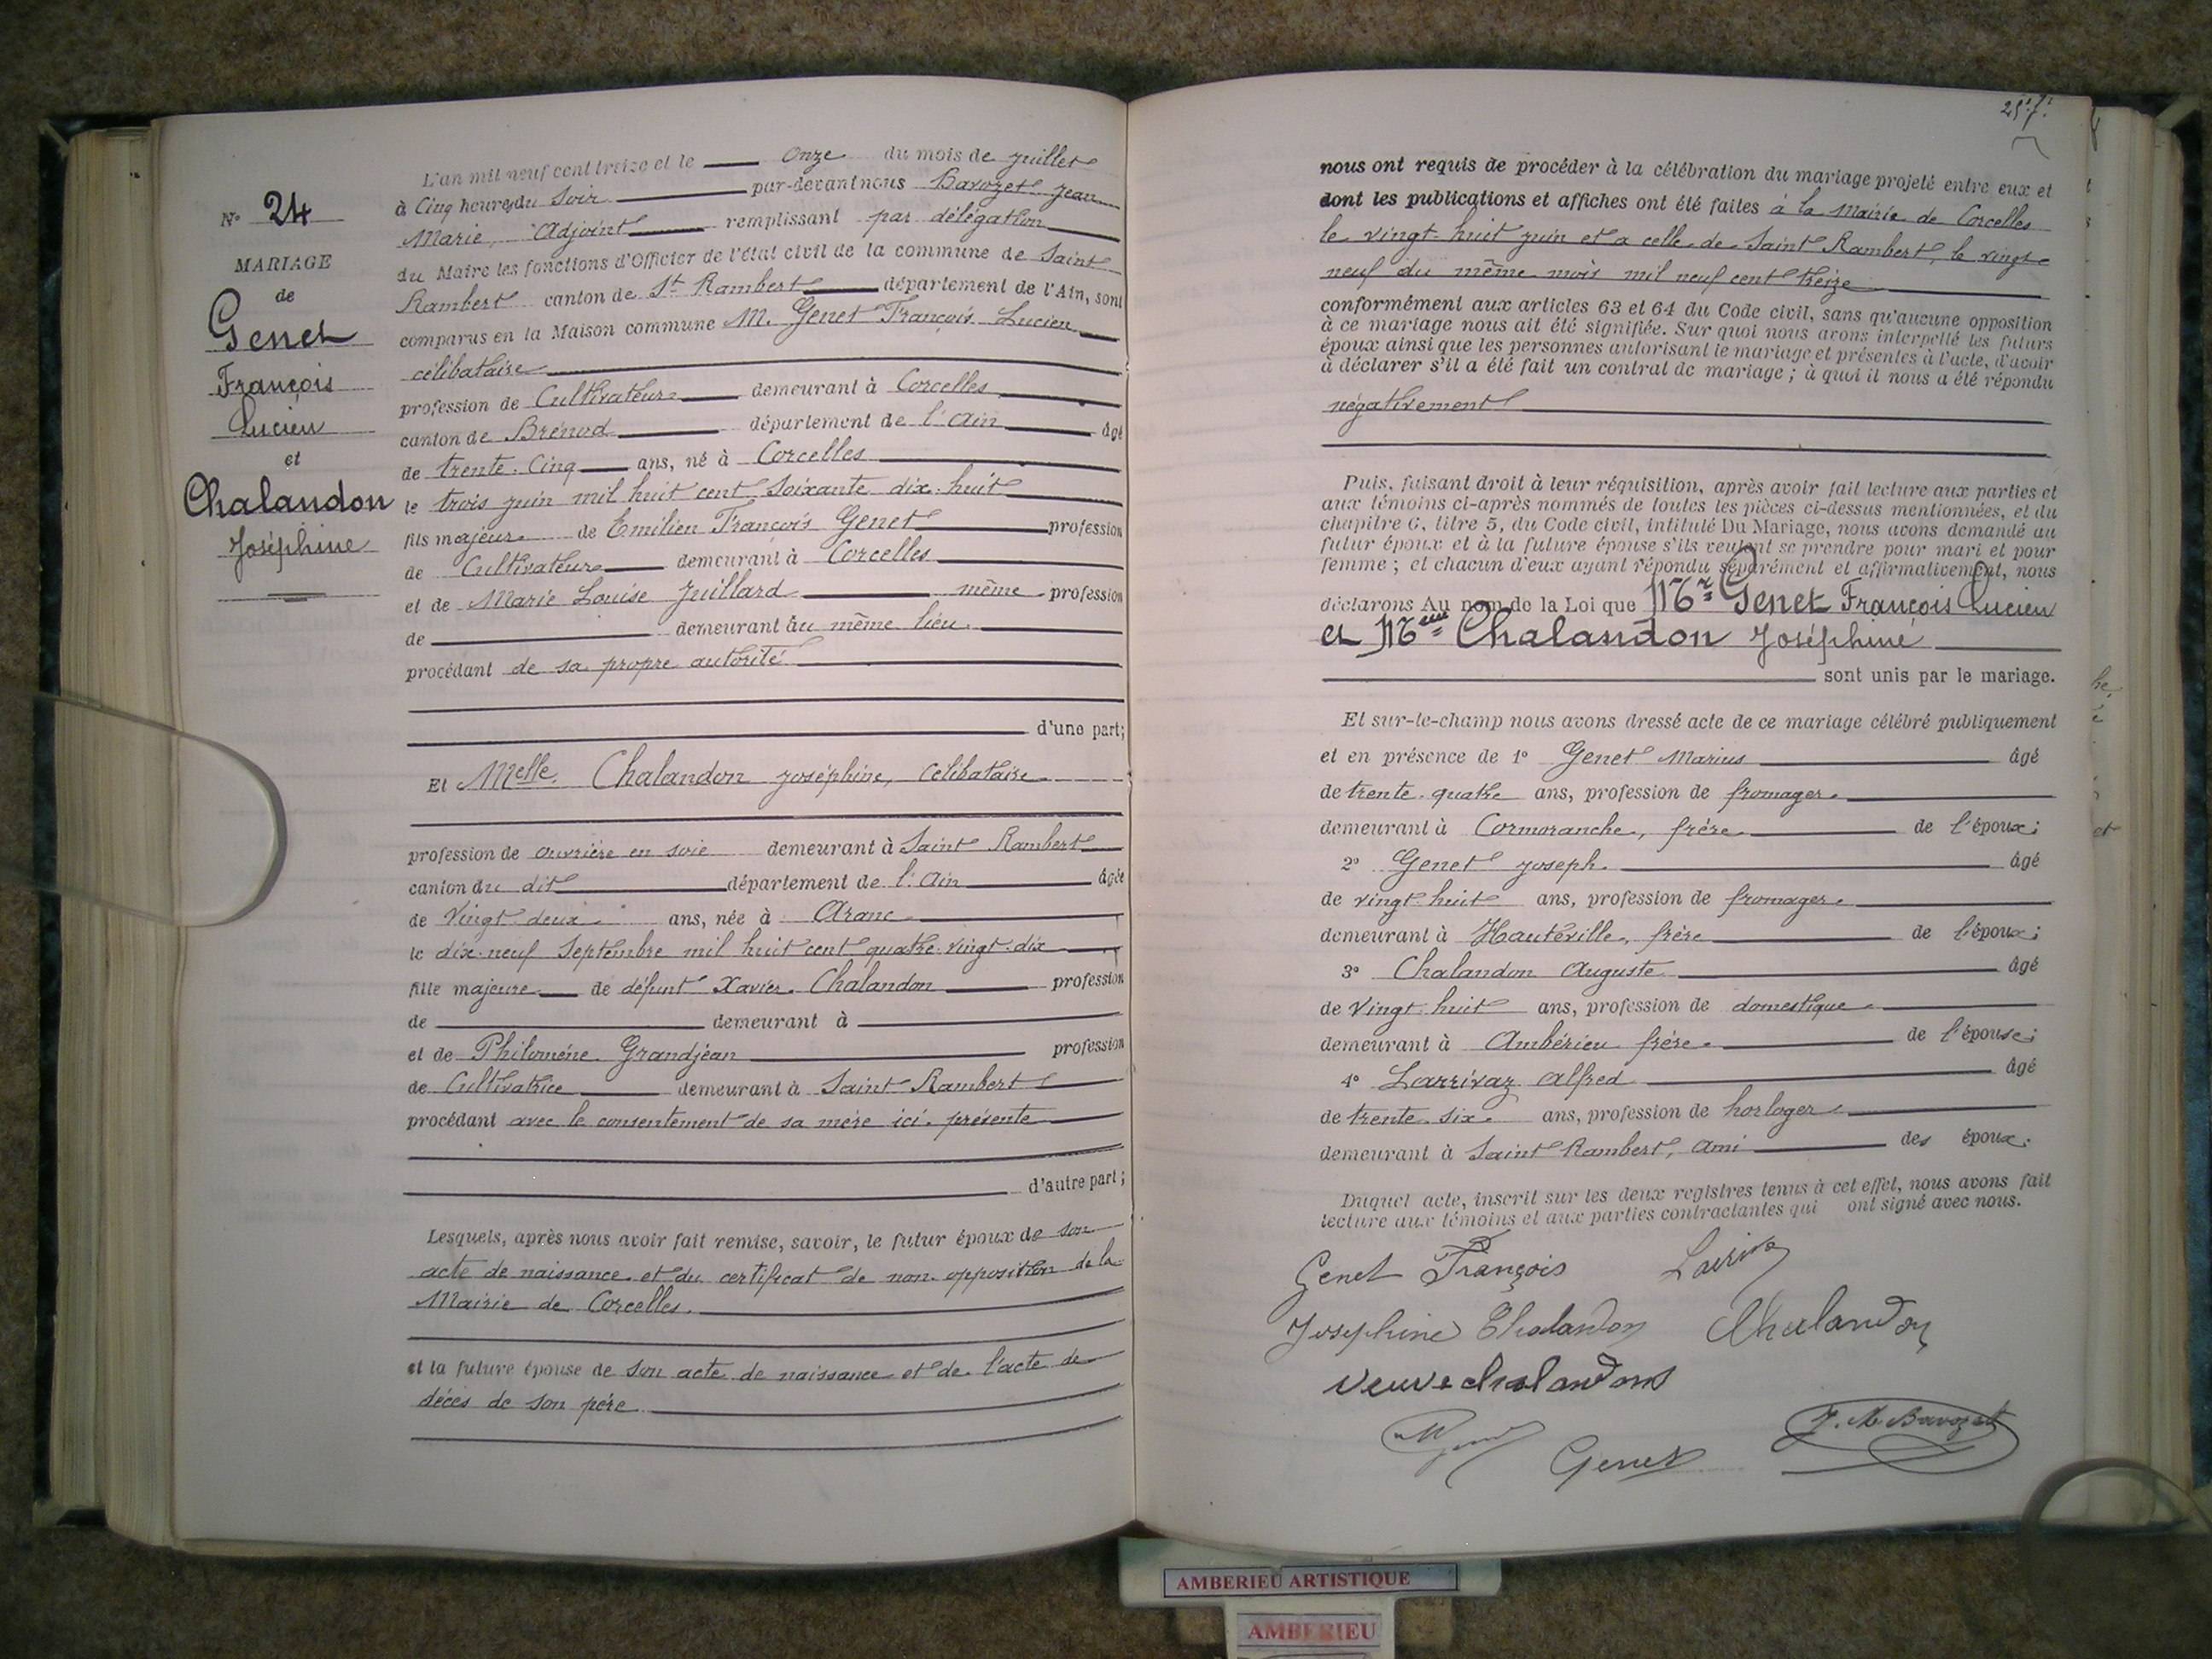 N° 24
MARIAGE
de
Genet
François
Lucien
et
Chalandon
Joséphine
L'an mil neuf cent treize et le onze du mois de juillet
à Cinq heures du Soir par-devant nous Bavozet Jean
Marie, Adjoint remplissant par délégation
du Maire les fonctions d'Officier de l'état civil de la commune de Saint
Rambert canton de St Rambert département de l'Ain, sont
comparus en la Maison commune M. Genet François Lucien
célibataire
profession de Cultivateur demeurant à Corcelles
canton de Brénod département de l'Ain âgé
de trente-Cinq ans, né à Corcelles
le trois juin mil huit cent soixante dix-huit
fils majeur de Emilien François Genet profession
de Cultivateur demeurant à Corcelles
et de Marie Louise Juillard même profession
de demeurant au même lieu.
procédant de sa propre autorité
d'une part;
Et Melle Chalandon Joséphine, célibataire
profession de ouvrière en soie demeurant à Saint Rambert
canton du dit département de l'Ain âgée
de vingt-deux ans, née à Aranc
le dix-neuf Septembre mil huit cent quatre-vingt-dix
fille majeure de défunt Xavier Chalandon profession
de demeurant à
et de Philomène Grandjean profession
de Cultivatrice demeurant à Saint Rambert
procédant avec le consentement de sa mère ici présente
d'autre part;
Lesquels, après nous avoir fait remise, savoir, le futur époux de son
acte de naissance et du certificat de non opposition de la
Mairie de Corcelles.
et la future épouse de son acte de naissance et de l'acte de
décès de son père
257.
nous ont requis de procéder à la célébration du mariage projeté entre eux et
dont les publications et affiches ont été faites à la Mairie de Corcelles
le vingt-huit juin et a celle de Saint Rambert, le vingt
neuf du même mois mil neuf cent treize
conformément aux articles 63 et 64 du Code civil, sans qu'aucune opposition
à ce mariage nous ait été signifiée. Sur quoi nous avons interpellé les futurs
époux ainsi que les personnes autorisant le mariage et présentes à l'acte, d'avoir
à déclarer s'il a été fait un contrat de mariage ; à quoi il nous a été répondu
négativement
Puis, faisant droit à leur réquisition, après avoir fait lecture aux parties et
aux témoins ci-après nommés de toutes les pièces ci-dessus mentionnées, et du
chapitre 6, titre 5, du Code civil, intitulé Du Mariage, nous avons demandé au
futur époux et à la future épouse s'ils veulent se prendre pour mari et pour
femme ; et chacun d'eux ayant répondu séparément et affirmativement, nous
déclarons Au nom de la Loi que Mr Genet François Lucien
et Melle Chalandon Joséphine
sont unis par le mariage.
Et sur-le-champ nous avons dressé acte de ce mariage célébré publiquement
et en présence de 1° Genet Marius âgé
de trente-quatre ans, profession de fromager
demeurant à Cormoranche, frère de l'époux;
2° Genet Joseph âgé
de vingt-huit ans, profession de fromager
demeurant à Hauteville, frère de l'époux;
3° Chalandon Auguste âgé
de vingt-huit ans, profession de domestique
demeurant à Ambérieu frère de l'épouse;
4° Larrivaz Alfred âgé
de trente-six ans, profession de horloger
demeurant à Saint Rambert, ami des époux.
Duquel acte, inscrit sur les deux registres tenus à cet effet, nous avons fait
lecture aux témoins et aux parties contractantes qui ont signé avec nous.
Genet François
Joséphine Chalandon Chalandon
veuve chalandons
Genet J. M. Bavozet
AMBERIEU ARTISTIQUE
AMBERIEU